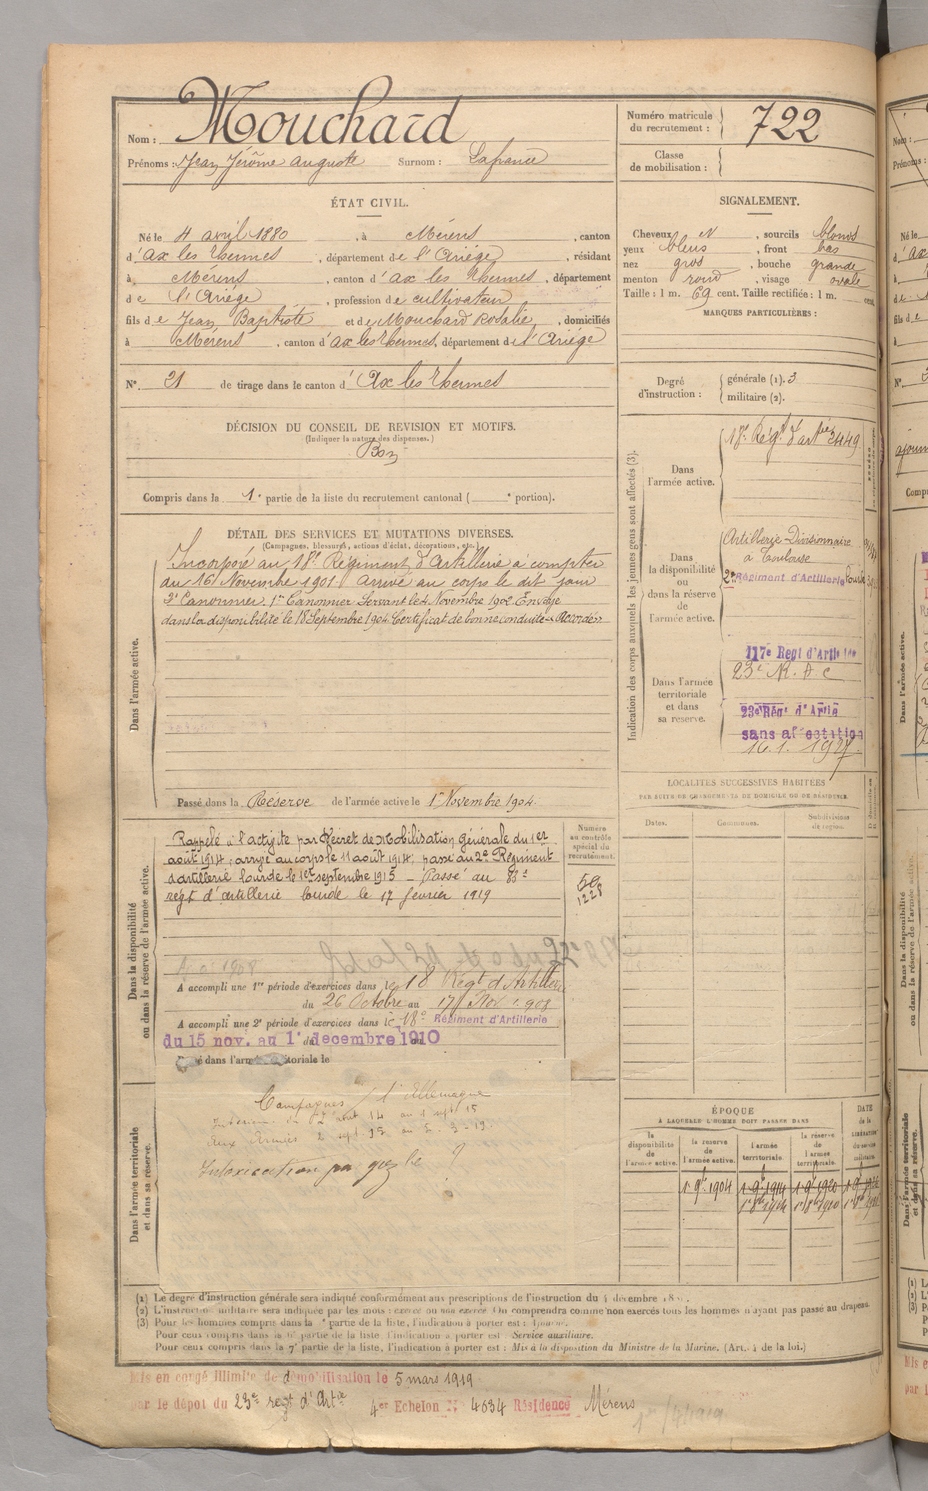 Nom : Mouchard
Prénoms : Jean Jérôme Auguste Surnom : Lafrance
Numéro matricule du recrutement : 722
Classe de mobilisation :
ÉTAT CIVIL.
Né le 4 avril 1880, à Mérens, canton
d'Ax les Thermes, département de l'Ariège, résidant
à Mérens, canton d'Ax les Thermes, département
de l'Ariège, profession de cultivateur
fils de Jean Baptiste et de Mouchard Rosalie, domiciliés
à Mérens, canton d'Ax les Thermes, département de l'Ariège
N° 21 de tirage dans le canton d'Ax les Thermes
SIGNALEMENT.
Cheveux et, sourcils blonds
yeux bleus, front bas
nez gros, bouche grande
menton rond, visage ovale
Taille : 1 m. 69 cent. Taille rectifiée : 1 m. cent.
MARQUES PARTICULIÈRES :
Degré d'instruction : générale (1). 3
militaire (2).
DÉCISION DU CONSEIL DE REVISION ET MOTIFS.
(Indiquer la nature des dispenses.)
Bon
Compris dans la 1e partie de la liste du recrutement cantonal ( e portion).
DÉTAIL DES SERVICES ET MUTATIONS DIVERSES.
(Campagnes, blessures, actions d'éclat, décorations, etc.)
Dans l'armée active.
Incorporé au 18e Régiment d'Artillerie à compter
du 16 Novembre 1901. arrivé au corps le dit jour
2e Canonnier. 1er Canonnier Servant le 4 Novembre 1902. Envoyé
dans la disponibilité le 18 Septembre 1904. Certificat de bonne conduite Accordé.
Passé dans la Réserve de l'armée active le 1er Novembre 1904.
Indication des corps auxquels les jeunes gens sont affectés (3).
Dans l'armée active.
18e Régt d'artie 2449
Dans la disponibilité ou dans la réserve de l'armée active.
Artillerie Divisionnaire
à Toulouse
2e Régiment d'Artillerie Lourde
Dans l'armée territoriale et dans sa réserve.
117e Regt d'Artie
23e R. A. C
23e Régt d'Artie
sans affectation
16. 1. 1927
LOCALITÉS SUCCESSIVES HABITÉES
PAR SUITE DE CHANGEMENTS DE DOMICILE OU DE RÉSIDENCE.
Dates. Communes. Subdivisions de région.
Dans la disponibilité ou dans la réserve de l'armée active.
Numéro au contrôle spécial du recrutement.
Rappelé à l'activité par Décret de Mobilisation générale du 1er
août 1914 ; arrivé au corps le 11 août 1914; passé au 2e Régiment
d'artillerie lourde le 1er septembre 1915 – Passé au 83e
régt d'artillerie lourde le 17 février 1919
1228
A accompli une 1re période d'exercices dans le 18 Régt d'Artillerie
du 26 Octobre au 17 Nov 1908
A accompli une 2e période d'exercices dans le 18e Régiment d'Artillerie
du 15 nov. au 1er decembre 1910
Passé dans l'armée territoriale le
Dans l'armée territoriale et dans sa réserve.
Campagnes / l'Allemagne
Intérieur du 2 août 14 au 1 sept 15
Aux Armées 2 sept 15 au 5-3-19
Intoxication par gaz le ?
ÉPOQUE
À LAQUELLE L'HOMME DOIT PASSER DANS
DATE de la LIBÉRATION du service militaire
la disponibilité de l'armée active.
la réserve de l'armée active.
l'armée territoriale.
la réserve de l'armée territoriale.
1er 9bre 1904 1er 9bre 1914 1er 9bre 1920
1er 8bre 1914 1er 8bre 1920
(1) Le degré d'instruction générale sera indiqué conformément aux prescriptions de l'instruction du 4 décembre
(2) L'instruction militaire sera indiquée par les mots : exercé ou non exercé. On comprendra comme non exercés tous les hommes n'ayant pas passé au drapeau.
(3) Pour les hommes compris dans la partie de la liste, l'indication à porter est :
Pour ceux compris dans la 6e partie de la liste l'indication à porter est : Service auxiliaire.
Pour ceux compris dans la 7e partie de la liste, l'indication à porter est : Mis à la disposition du Ministre de la Marine. (Art. 4 de la loi.)
Mis en congé illimité de démobilisation le 5 mars 1919
par le dépôt du 23e regt d'Artie 4er Echelon N° 4634 Résidence Mérens